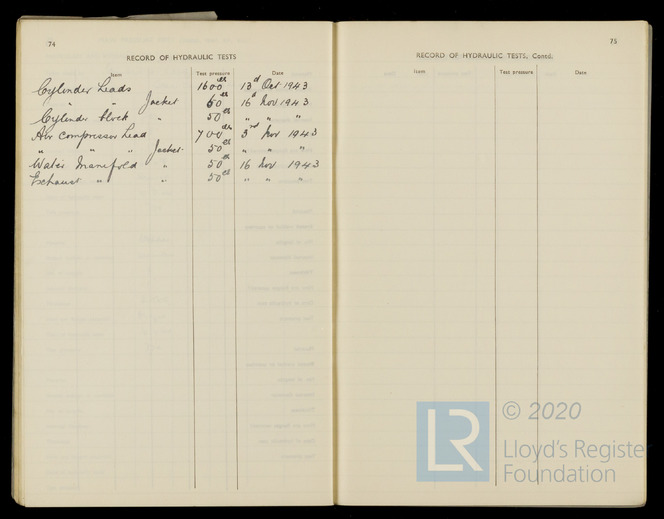 74
RECORD OF HYDRAULIC TESTS
Item Test pressure Date
Cylinder Heads 1600 lb 13th Oct 1943
" " Jacket 60 lb 16th Nov 1943
Cylinder Block " 50 lb " " "
Air Compressor Head 700 lb 3rd Nov 1943
" " " Jacket 50 lb " " "
Water Manifold " 50 lb 16 Nov 1943
Exhaust " " 50 lb " " "
75
RECORD OF HYDRAULIC TESTS, Contd.
Item Test pressure Date
LR © 2020
Lloyd's Register
Foundation